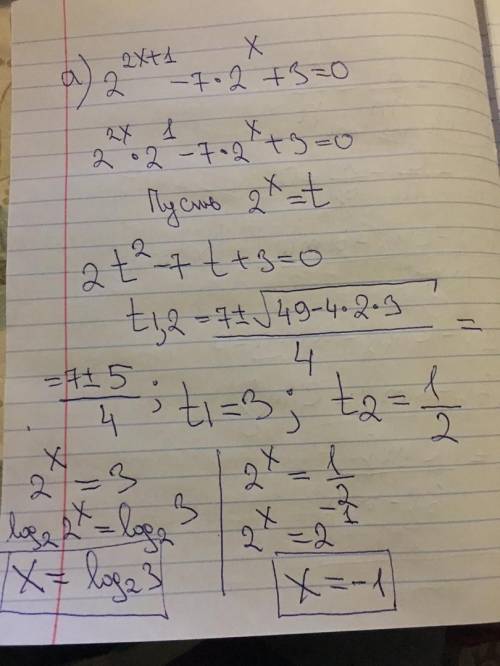 а) 2^(2x+1) -7·2^x +3=0
2^(2x)·2^1 -7·2^x+3=0
Пусть 2^x=t
2t^2-7t+3=0
t1,2 = (7±√(49-4·2·3))/4 =
= (7±5)/4; t1=3; t2=1/2
2^x=3
log₂2^x=log₂3
x=log₂3
2^x=1/2
2^x=2^-1
x=-1